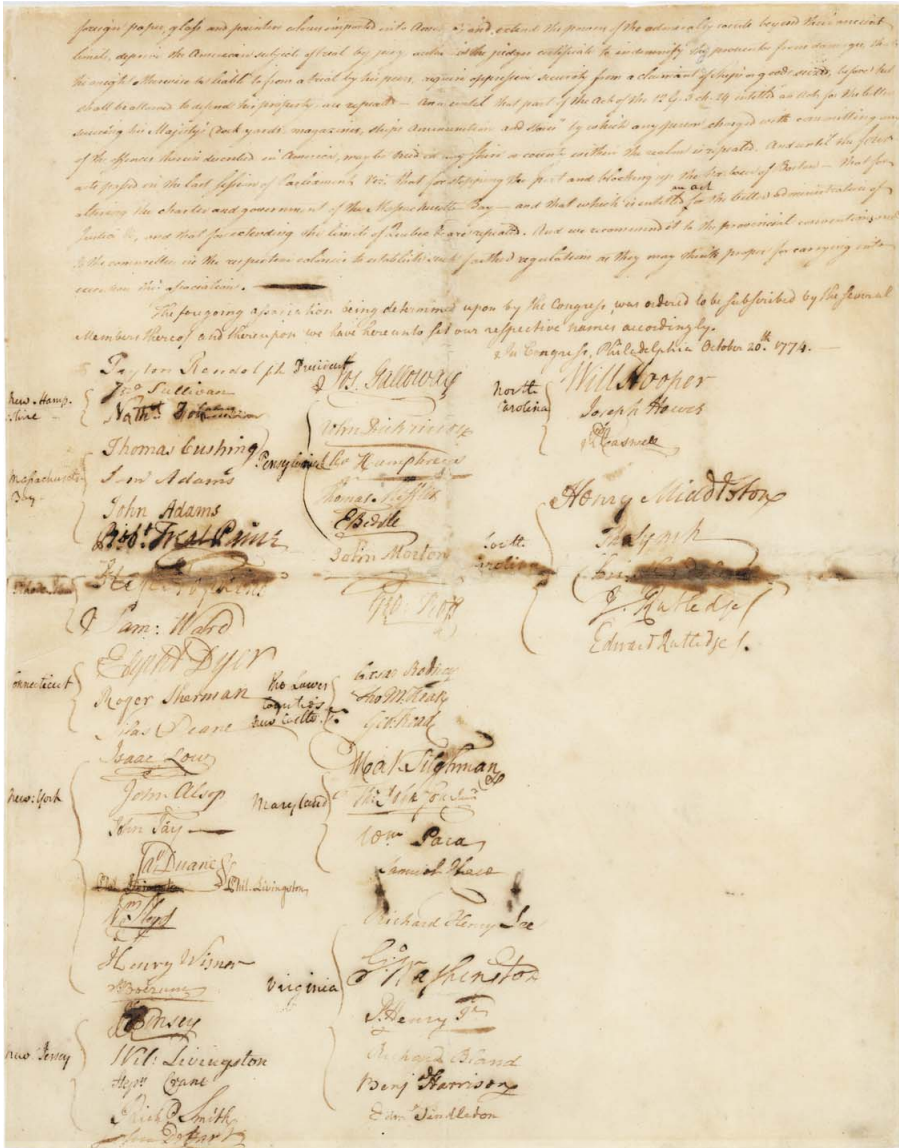 foreign paper, glass and painters colours imported into America and extend the powers of the admiralty courts beyond their ancient
limits, deprive the American subject of trial by jury, authorise the judges certificate to indemnify the prosecutor from damages, that
he might otherwise be liable to from a trial by his peers, require oppressive security from a claimant of ships or goods seized, before he
shall be allowed to defend his property, are repealed — And until that part of the Act of the 12 G. 3 ch. 24 entitled an Act for the better
securing his Majesty's dock yards, magazines, ships Ammunition and stores" by which any person charged with committing any
of the offences therein described in America, may be tried in any shire or county within the realm is repealed. And until the four
acts passed in the last session of Parliament, Viz. that for stopping the port and blocking up the harbour of Boston — that for
altering the charter and government of the Massachusetts Bay — and that which is entitled an act for the better administration of
Justice &c, and that for extending the limits of Quebec &c are repealed. And we recommend it to the provincial conventions and
to the committees in the respective colonies to establish such farther regulations as they may think proper for carrying into
execution this association.
The foregoing association being determined upon by the Congress, was ordered to be subscribed by the several
Members thereof and thereupon we have hereunto set our respective names accordingly.
In Congress, Philadelphia October 20th. 1774.
Peyton Randolph President
New-Hamp-
shire
Jno Sullivan
Nathl
Massachusetts
Bay
Thomas Cushing
Saml Adams
John Adams
Robt Treat Paine
Sam: Ward
Connecticut
Eliphr Dyer
Roger Sherman
Silas Deane
New:York
Isaac Low
John Alsop
John Jay
Jas Duane
Phil. Livingston
Wm Floyd
Henry Wisner
S: Boerum
New Jersey
J. Kinsey
Wil: Livingston
Stepn Crane
Richd Smith
John De Hart
Pensylvania
Jos. Galloway
John Dickinson
Cha Humphreys
Thomas Mifflin
E Biddle
John Morton
Geo: Ross
the Lower
Counties
New Castle
Caesar Rodney
Tho M:Kean
Geo: Read
Maryland
Mat Tilghman
Ths Johnson Junr
Wm Paca
Samuel Chase
Virginia
Richard Henry Lee
Go Washington
P. Henry Jr
Richard Bland
Benj Harrison
Edmd Pendleton
North
Carolina
Will Hooper
Joseph Hewes
Rd Caswell
South
Carolina
Henry Middleton
Tho Lynch
J. Rutledge
Edward Rutledge